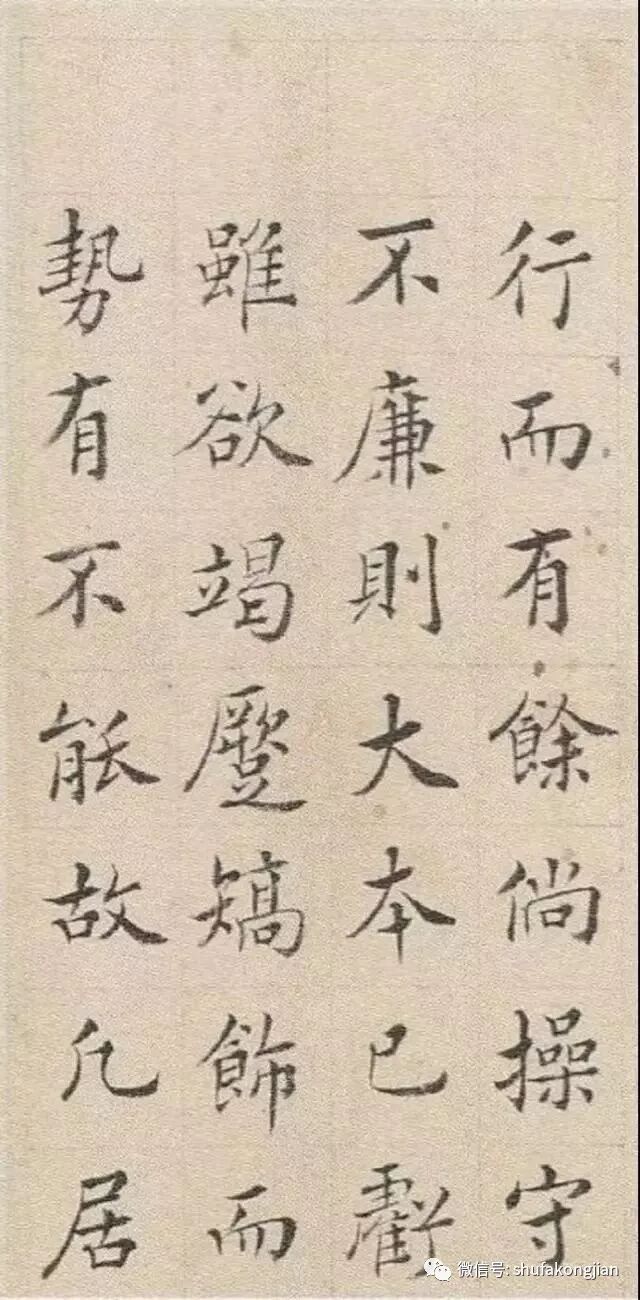 行而有餘倘操守
不廉則大本已虧
雖欲竭蹷矯飾而
勢有不能故凡居
微信号: shufakongjian